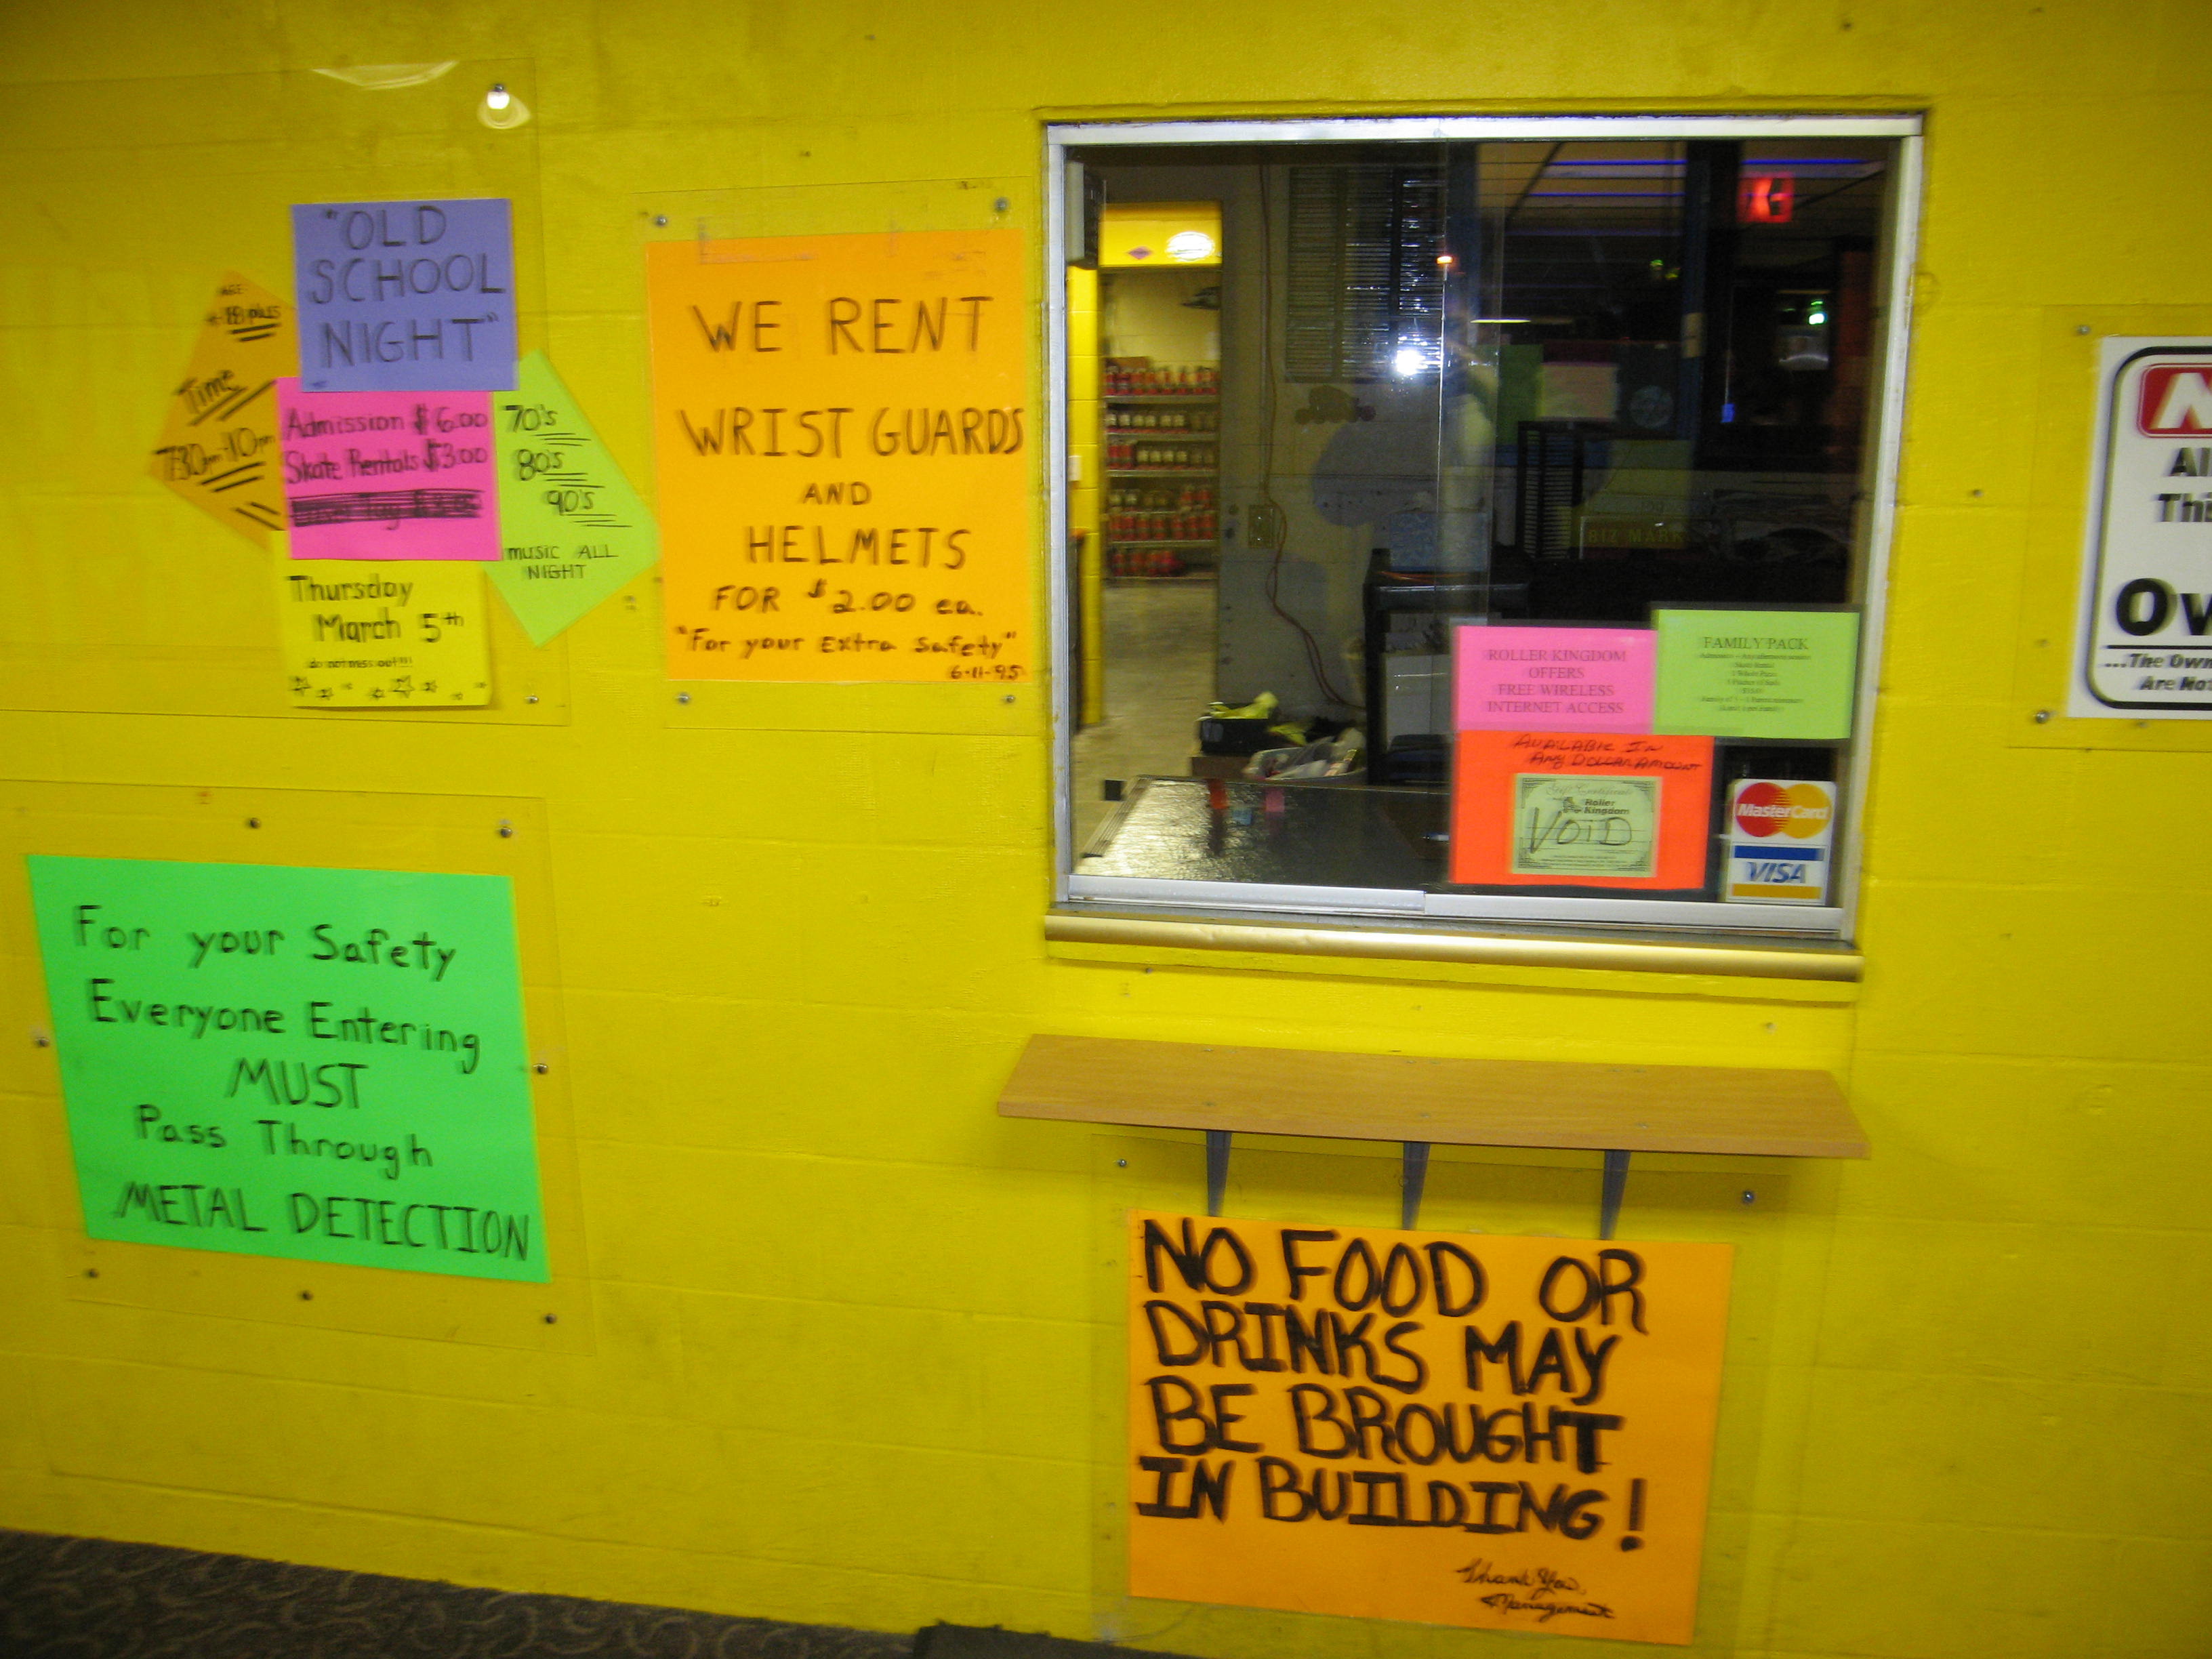 "OLD
SCHOOL
NIGHT"
AGE
18 plus
Time
7:30pm-10pm
Admission $6.00
Skate Rentals $3.00
70's
80's
90's
music ALL
NIGHT
Thursday
March 5th
do not miss out!!!
WE RENT
WRIST GUARDS
AND
HELMETS
FOR $2.00 ea.
"For your Extra Safety"
6-11-95
BIZ MARK
ROLLER KINGDOM
OFFERS
FREE WIRELESS
INTERNET ACCESS
FAMILY PACK
AVAILABLE In
Any Dollar Amount
Gift Certificate
Roller
Kingdom
VOID
MasterCard
VISA
Al
Thi
Ow
...The Own
Are Not
For your Safety
Everyone Entering
MUST
Pass Through
METAL DETECTION
NO FOOD OR
DRINKS MAY
BE BROUGHT
IN BUILDING!
Thank You,
Management